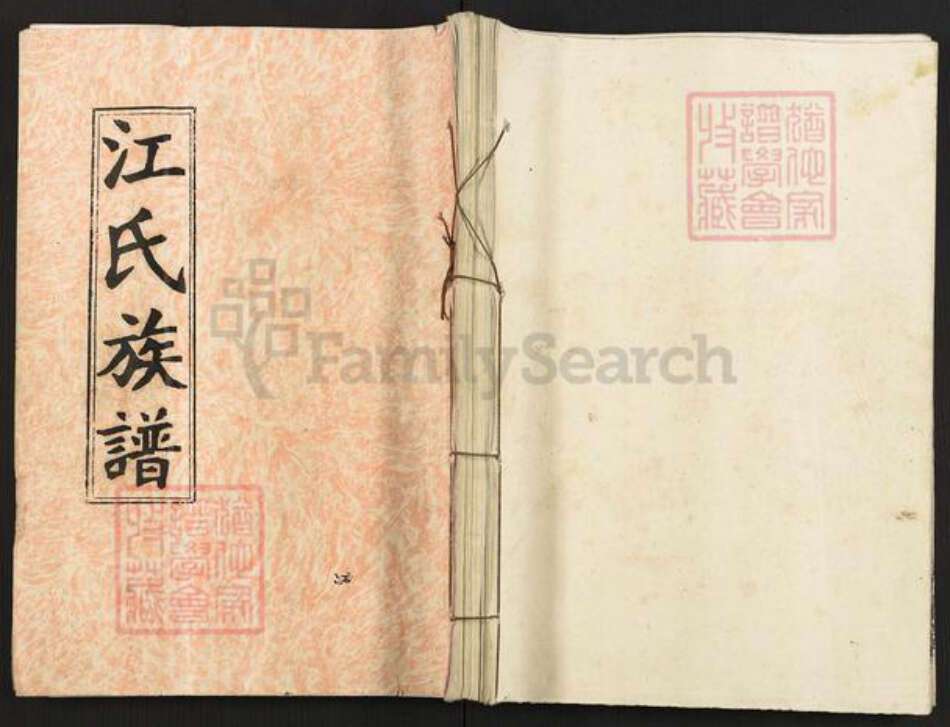 江氏族譜
猶他家
譜學會
收藏
猶他家
譜學會
收藏
FamilySearch